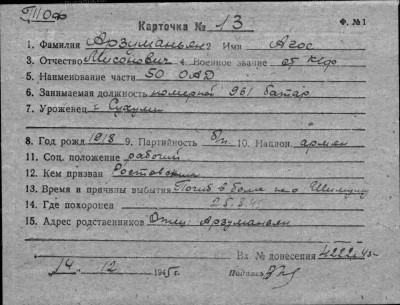 Карточка № 13
Ф. №1
1. Фамилия Арзуманьян 2. Имя Агос
3. Отчество Мисонович 4. Военное звание
5. Наименование части 50 ОАД
6. Занимаемая должность номерной 961 батар
7. Уроженец г. Сухуми
8. Год рожд 1918 9. Партийность б/п 10. Национ. армян
11. Соц. положение рабочий
12. Кем призван Ростовским
13. Время и причины выбытия Погиб в бою на о Шимушу
14. Где похоронен 25.8.45
15. Адрес родственников Отец: Арзуманьян
Вх № донесения
14. 12 1945 г. Подпись